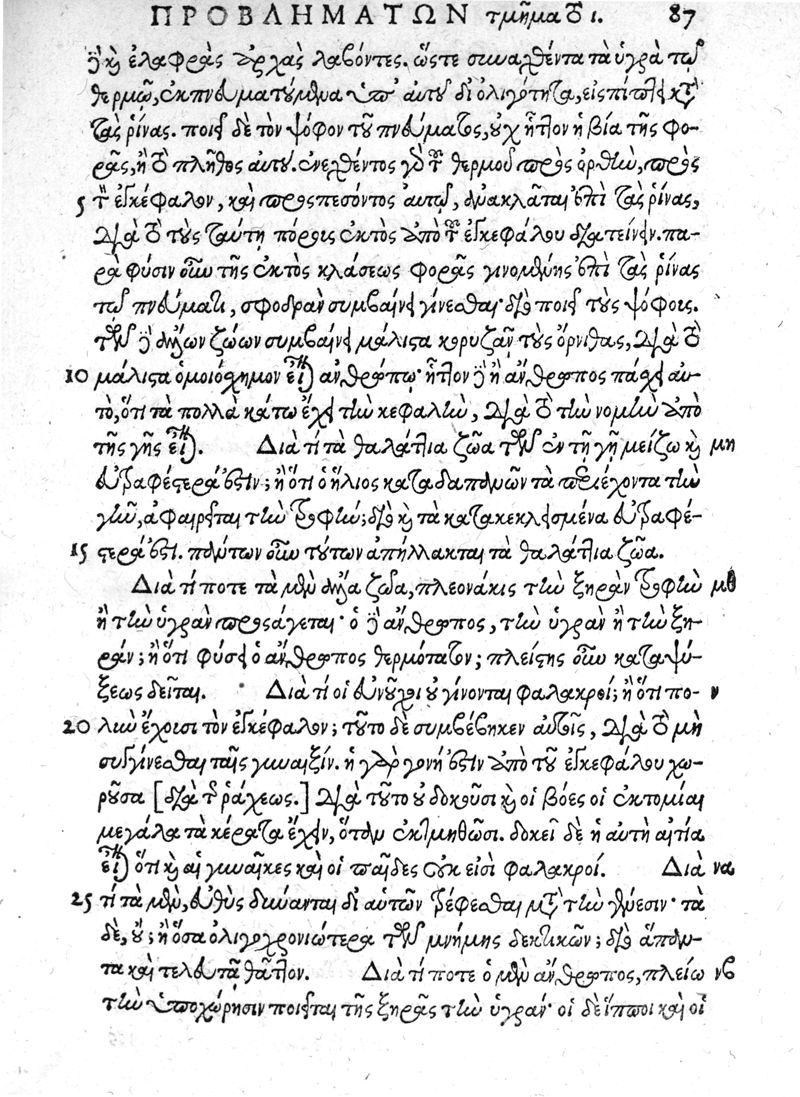 ΠΡΟΒΛΗΜΑΤΩΝ τμῆμα τὸ ι. 87
ἢ καὶ ἐλαφρὰς ἀρχὰς λαβόντες. ὥςτε συναχθέντα τὰ ὑγρὰ τῷ
θερμῷ, ἐκπνευματούμενα ὑπ' αὐτοῦ δι' ὀλιγότητα, εἰςπίπτει κατὰ
τὰς ῥίνας. ποιεῖ δὲ τὸν ψόφον τοῦ πνεύματος, οὐχ ἧττον ἡ βία τῆς φο-
ρᾶς, ἢ τὸ πλῆθος αὐτοῦ. ἐνεχθέντος γὰρ τοῦ θερμοῦ πρὸς ὀρθὴν, πρὸς
5 τὸν ἐγκέφαλον, καὶ προςπεσόντος αὐτῷ, ἀνακλᾶται ἐπὶ τὰς ῥίνας,
διὰ τὸ τοὺς ταύτῃ πόρους ἐκτὸς ἀπὸ τοῦ ἐγκεφάλου διατείνειν. πα-
ρὰ φύσιν οὖν τῆς ἐκτὸς κλάσεως φορᾶς γινομένης ἐπὶ τὰς ῥίνας
τῷ πνεύματι, σφοδρὰν συμβαίνει γίνεσθαι· διὸ ποιεῖ τοὺς ψόφους.
τῶν δὲ ἄλλων ζώων συμβαίνει μάλιςα κορυζᾶν τοὺς ὄρνιθας, διὰ τὸ
10 μάλιςα ὁμοιόσχημον εἶναι ἀνθρώπῳ· ἧττον δὲ ἢ ἄνθρωπος πάσχει αὐ-
τὸ, ὅτι τὰ πολλὰ κάτω ἔχει τὴν κεφαλὴν, διὰ τὸ τὴν νομὴν ἀπὸ
τῆς γῆς εἶναι. Διὰ τί τὰ θαλάττια ζῶα τῶν ἐν τῇ γῇ μείζω καὶ μη
εὐτραφέςερά ἐςιν; ἢ ὅτι ὁ ἥλιος καταδαπανῶν τὰ περιέχοντα τὴν
γῆν, ἀφαιρεῖται τὴν τροφήν; διὸ καὶ τὰ κατακεκλεισμένα εὐτραφέ-
15 ςερά ἐςι. πάντων οὖν τούτων ἀπήλλακται τὰ θαλάττια ζῶα.
Διὰ τί ποτε τὰ μὲν ἄλλα ζῶα, πλεονάκις τὴν ξηρὰν τροφὴν μθ
ἢ τὴν ὑγρὰν προςάγεται· ὁ δὲ ἄνθρωπος, τὴν ὑγρὰν ἢ τὴν ξη-
ράν; ἢ ὅτι φύσει ὁ ἄνθρωπος θερμότατον; πλείςης οὖν καταψύ-
ξεως δεῖται. Διὰ τί οἱ εὐνοῦχοι οὐ γίνονται φαλακροί; ἢ ὅτι πο- ν
20 λὺν ἔχουσι τὸν ἐγκέφαλον; τοῦτο δὲ συμβέβηκεν αὐτοῖς, διὰ τὸ μὴ
συγγίνεσθαι ταῖς γυναιξίν. ἡ γὰρ γονή ἐςιν ἀπὸ τοῦ ἐγκεφάλου χω-
ροῦσα [διὰ τῆς ῥάχεως.] διὰ τοῦτο δοκοῦσι καὶ οἱ βόες οἱ ἐκτομίαι
μεγάλα τὰ κέρατα ἔχειν, ὅταν ἐκτμηθῶσι. δοκεῖ δὲ ἡ αὐτὴ αἰτία
εἶναι ὅτι καὶ αἱ γυναῖκες καὶ οἱ παῖδες οὐκ εἰσὶ φαλακροί. Διὰ να
25 τί τὰ μὲν, εὐθὺς δύνανται δι' αὑτῶν τρέφεσθαι μετὰ τὴν γένεσιν· τὰ
δὲ, οὔ; ἢ ὅσα ὀλιγοχρονιώτερα τῶν μνήμης δεκτικῶν; διὸ ἅπαν-
τα καὶ τελευτᾷ θᾶττον. Διὰ τί ποτε ὁ μὲν ἄνθρωπος, πλείω νβ
τὴν ὑποχώρησιν ποιεῖται τῆς ξηρᾶς τὴν ὑγράν· οἱ δὲ ἵπποι καὶ οἱ